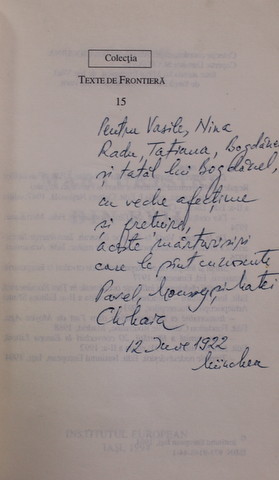 Colecția
TEXTE DE FRONTIERĂ
15
Pentru Vasile, Nina
Radu, Tatiana, Bogdănel
și tatăl lui Bogdănel,
cu veche afecțiune
și prețuire,
aceste mărturisiri
care le sînt cunoscute
Pavel, și Matei
Chihaia
12 Iunie 1922
München
INSTITUTUL EUROPEAN
IAȘI, 1997